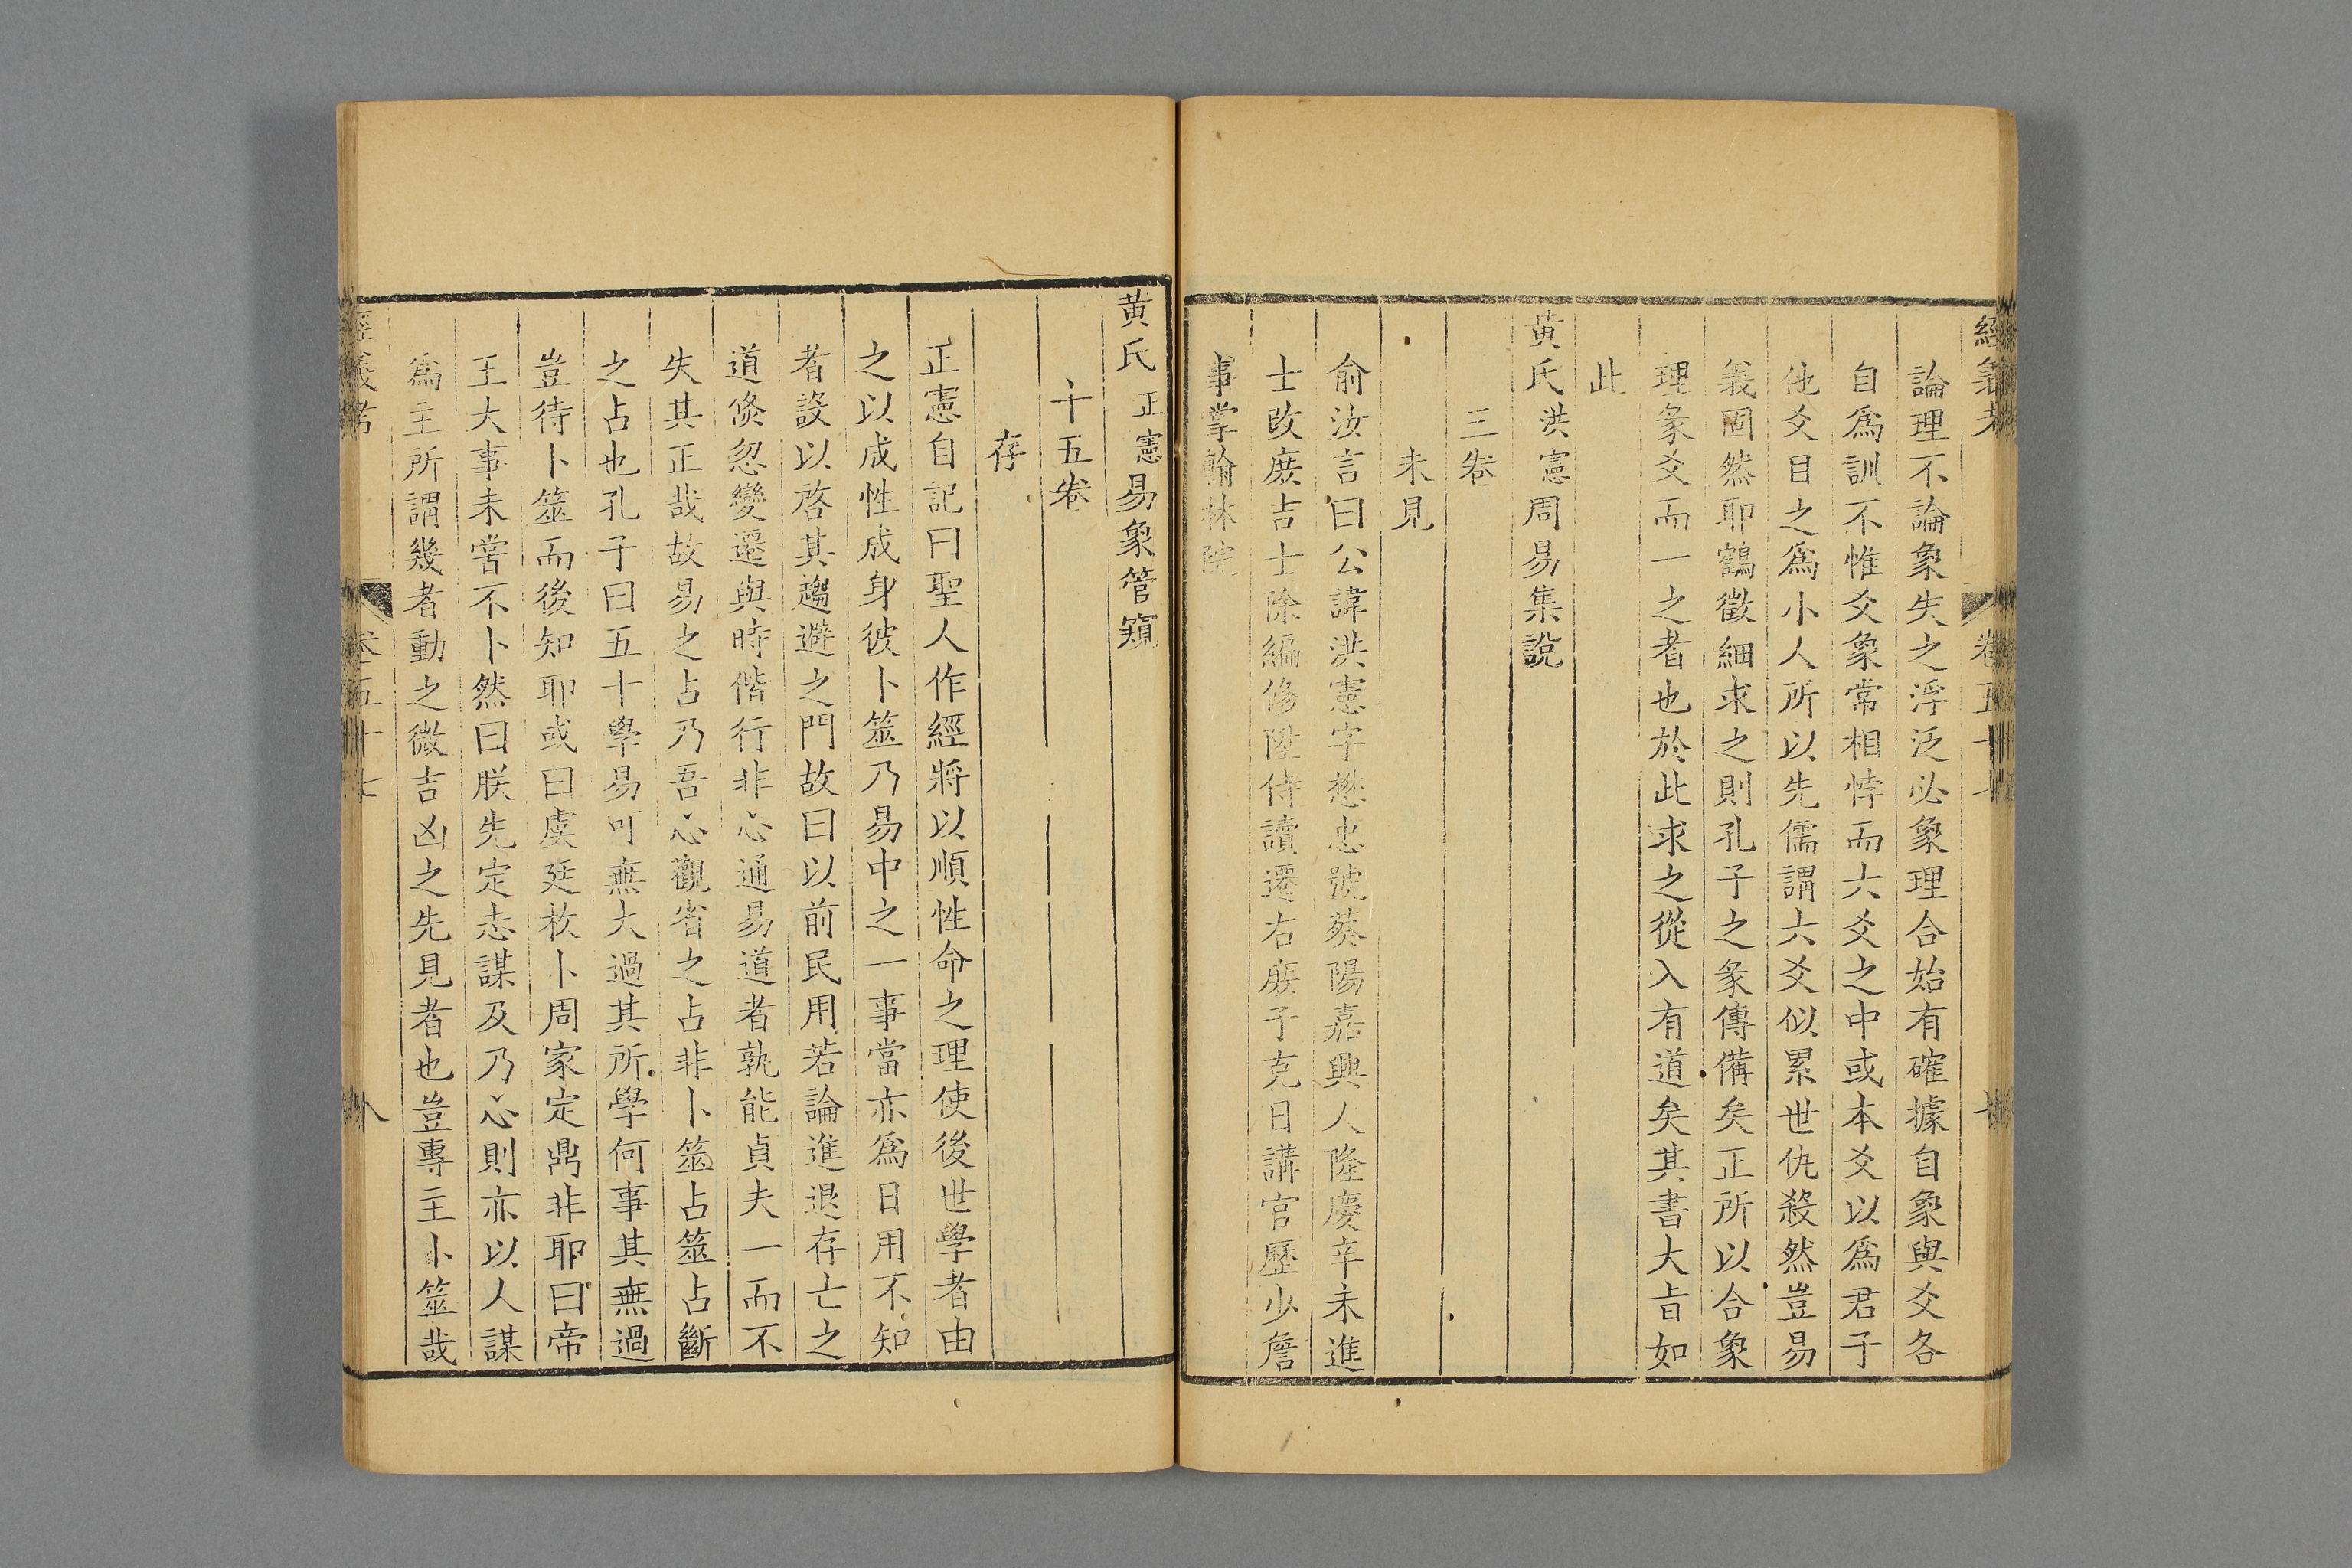 經義考
卷五十七
七
論理不論象失之浮泛必象理合始有確據自象與爻各
自爲訓不惟爻象常相悖而六爻之中或本爻以爲君子
他爻目之爲小人所以先儒謂六爻似累世仇殺然豈易
義固然耶鶴徵細求之則孔子之彖傳備矣正所以合象
理彖爻而一之者也於此求之從入有道矣其書大旨如
此
黃氏洪憲周易集說
三卷
未見
俞汝言曰公諱洪憲字懋忠號葵陽嘉興人隆慶辛未進
士改庶吉士除編修陞侍讀遷右庶子充日講官歷少詹
事掌翰林院
黃氏正憲易象管窺
十五卷
存
正憲自記曰聖人作經將以順性命之理使後世學者由
之以成性成身彼卜筮乃易中之一事當亦爲日用不知
者設以啓其趨避之門故曰以前民用若論進退存亡之
道倐忽變遷與時偕行非心通易道者孰能貞夫一而不
失其正哉故易之占乃吾心觀省之占非卜筮占筮占斷
之占也孔子曰五十學易可無大過其所學何事其無過
豈待卜筮而後知耶或曰虞廷枚卜周家定鼎非耶曰帝
王大事未嘗不卜然曰朕先定志謀及乃心則亦以人謀
爲主所謂幾者動之微吉凶之先見者也豈專主卜筮哉
經義考
卷五十七
八